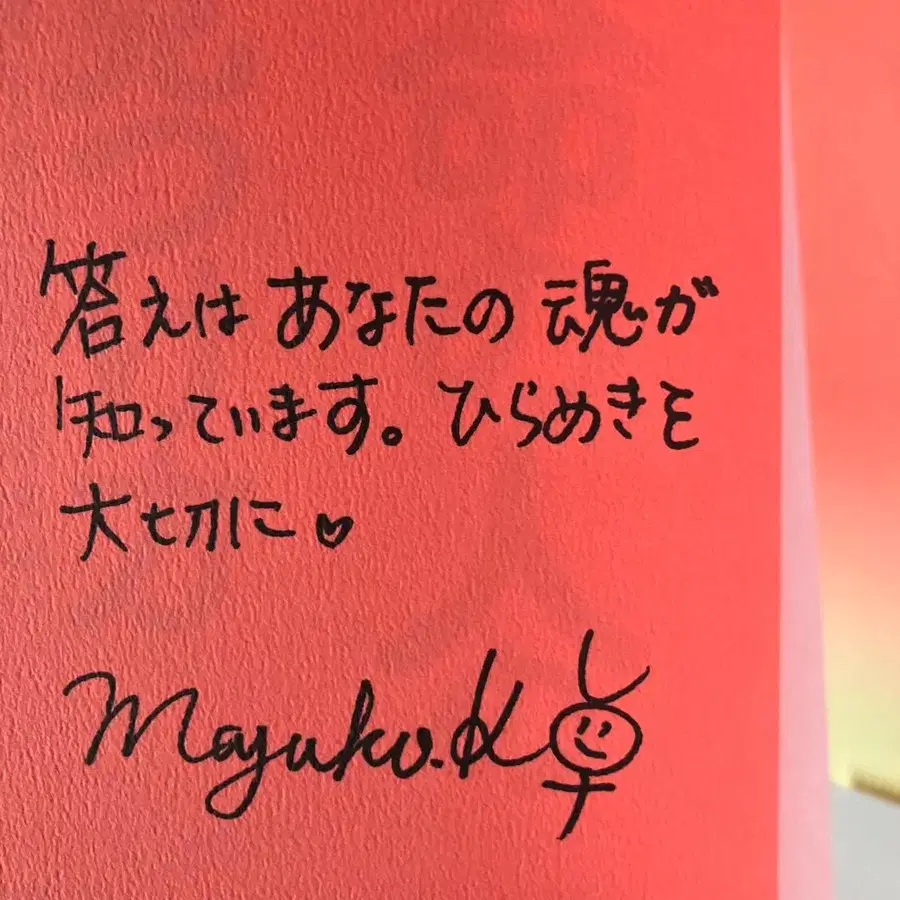 答えは あなたの 魂が
知っています。ひらめきを
大切に♡
Mayuko.K